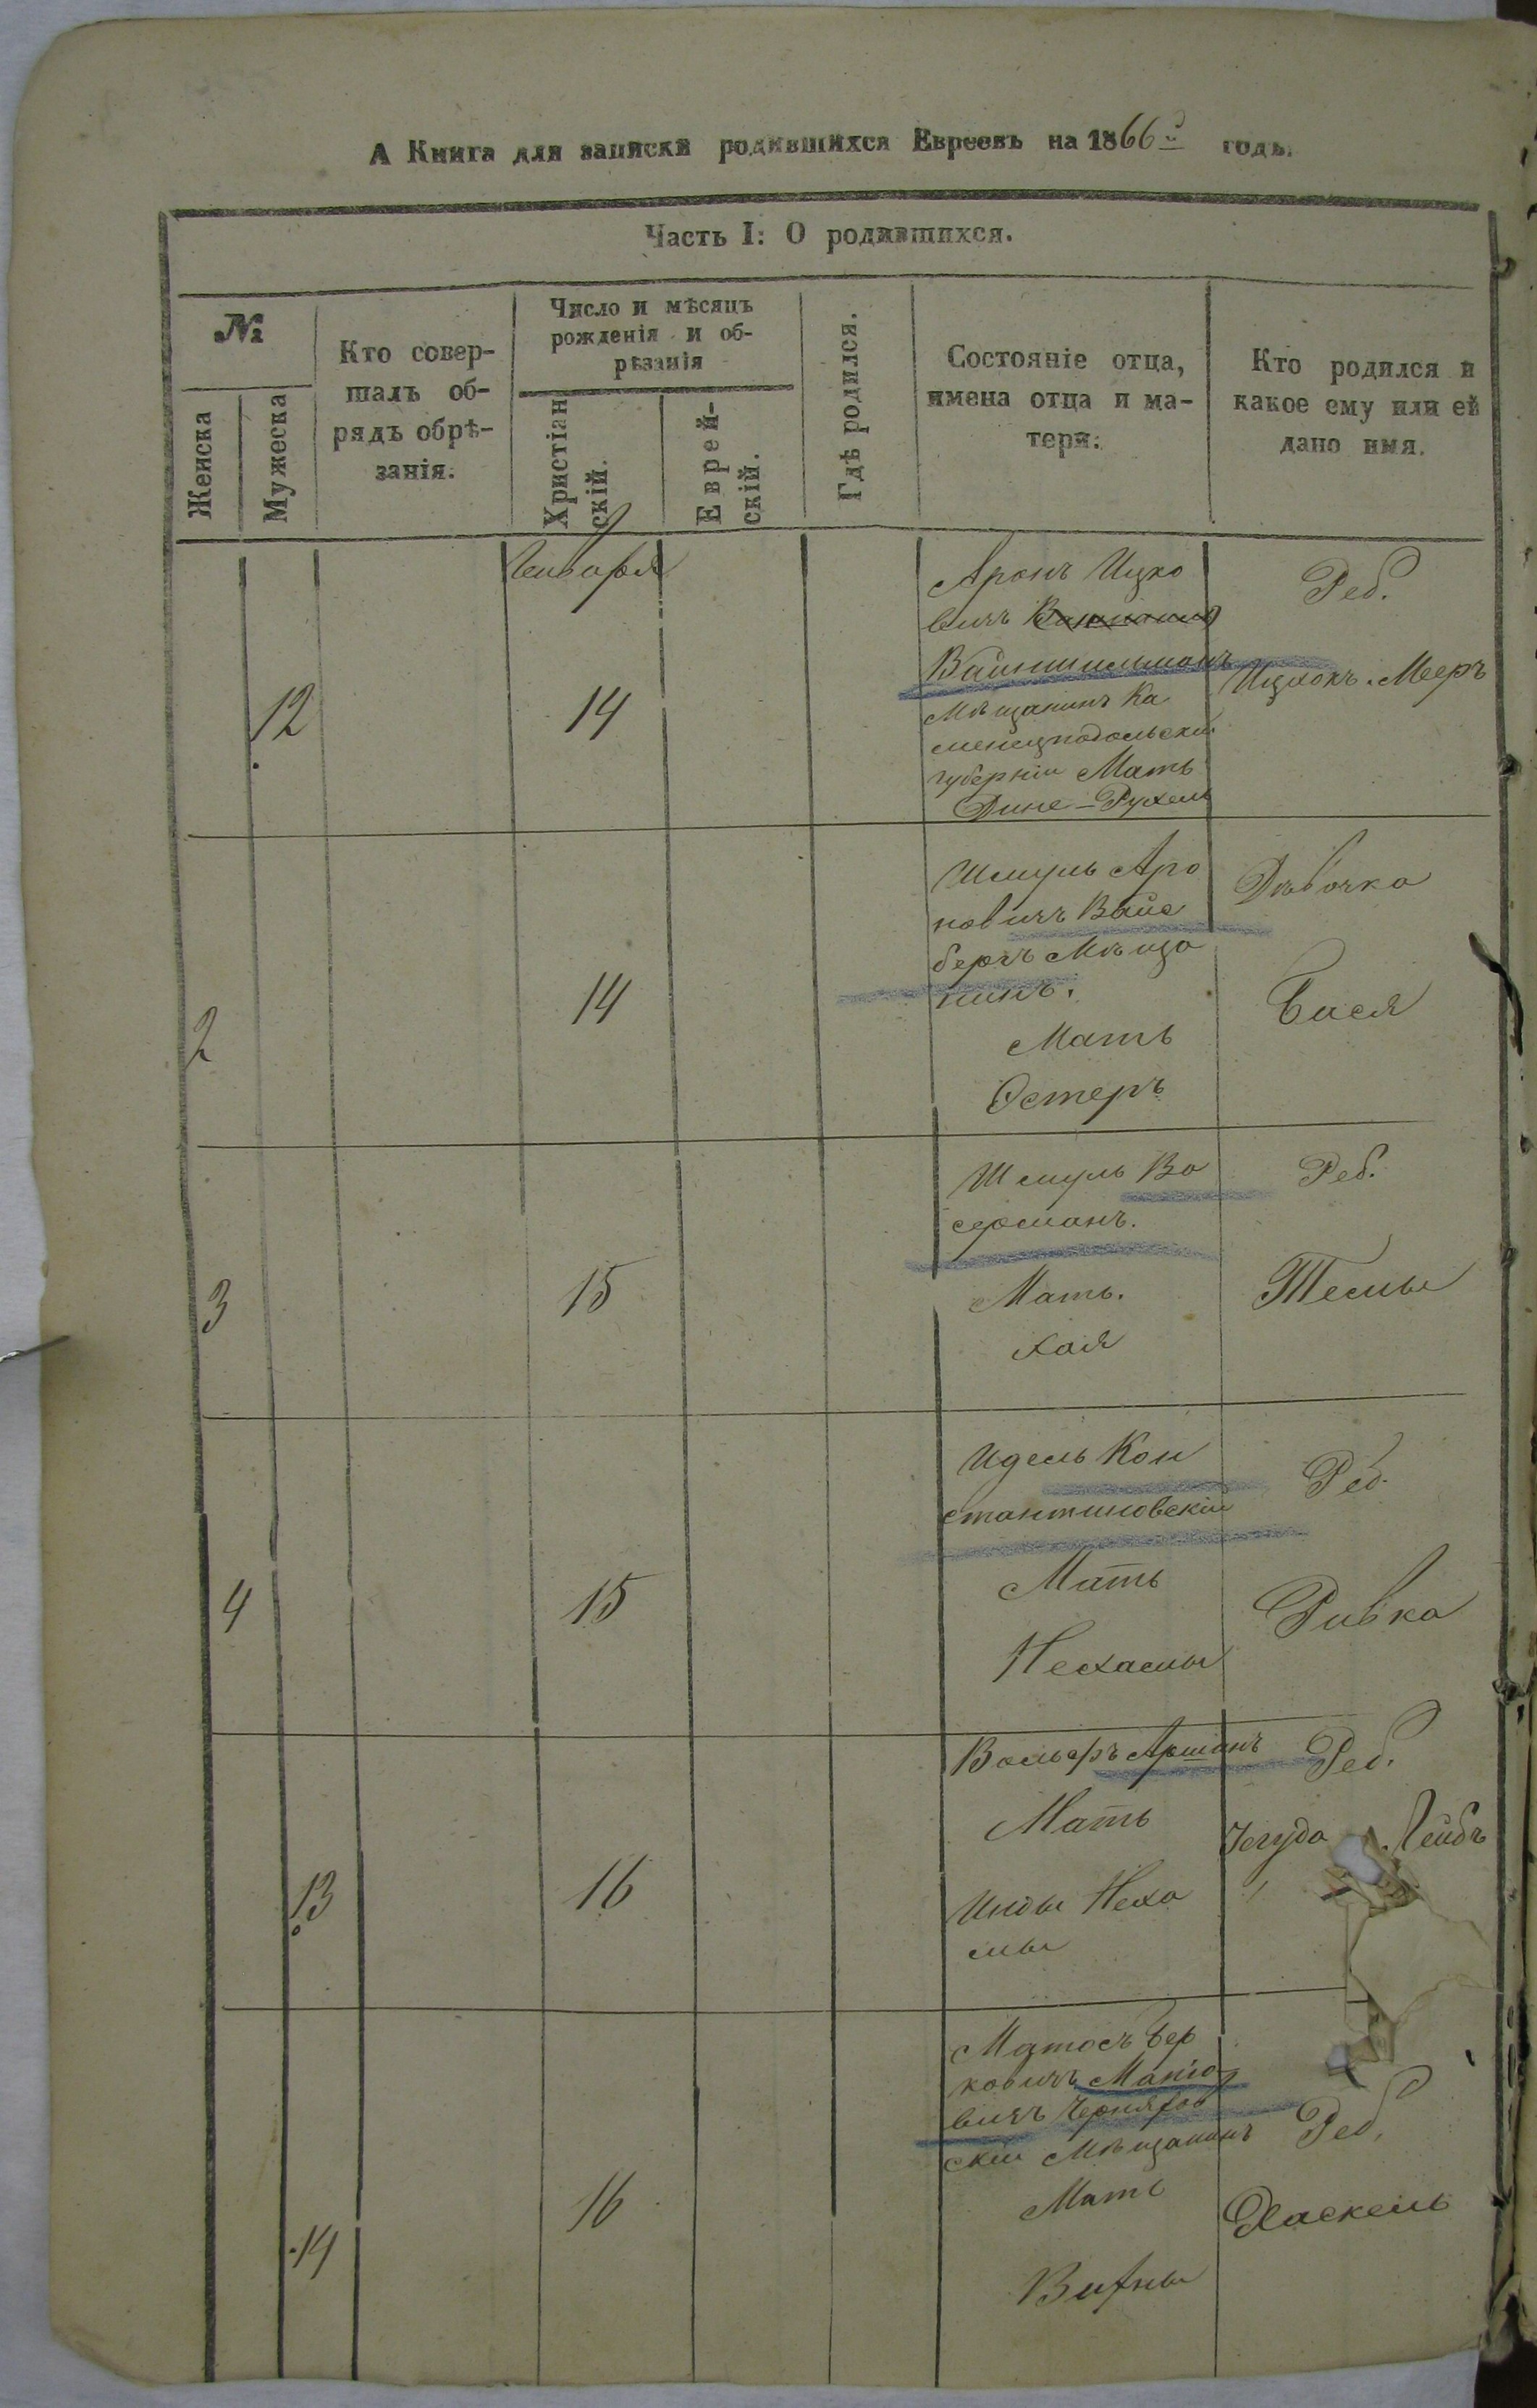 А Книга для записки родившихся Евреевъ на 1866й годъ.
Часть I: О родившихся.
№
Женска
Мужеска
Кто совер-
шалъ об-
рядъ обрѣ-
занія.
Число и мѣсяцъ
рожденія и об-
рѣзанія
Христіан
скій.
Еврей-
скій.
Гдѣ родился.
Состояніе отца,
имена отца и ма-
тери.
Кто родился и
какое ему или ей
дано имя.
Генваря
12
14
Аронъ Ицко
вичъ
Вайншельманъ
Мѣщанинъ Ка
менецподольскій
губерніи Мать
Дине-Рухель
Реб.
Ицхокъ. Мееръ
2
14
Шмуль Аро
новичъ Вайс
бергъ Мѣща
нинъ.
Мать
Эстеръ
Дѣвочка
Бася
3
15
Шмуль Ва
серманъ.
Мать.
Хая
Реб.
Темы
4
15
Идель Кон
стантиновскій
Мать
Нехамы
Реб.
Ривка
13
16
Вольфъ Аршанъ
Мать
Инды Неха
мы
Реб.
Іегуда Лейбъ
14
16
Матосъ Бер
ковичъ
вичъ Черняхов
скій Мѣщанинъ
Мать
Витны
Реб.
Хаскель